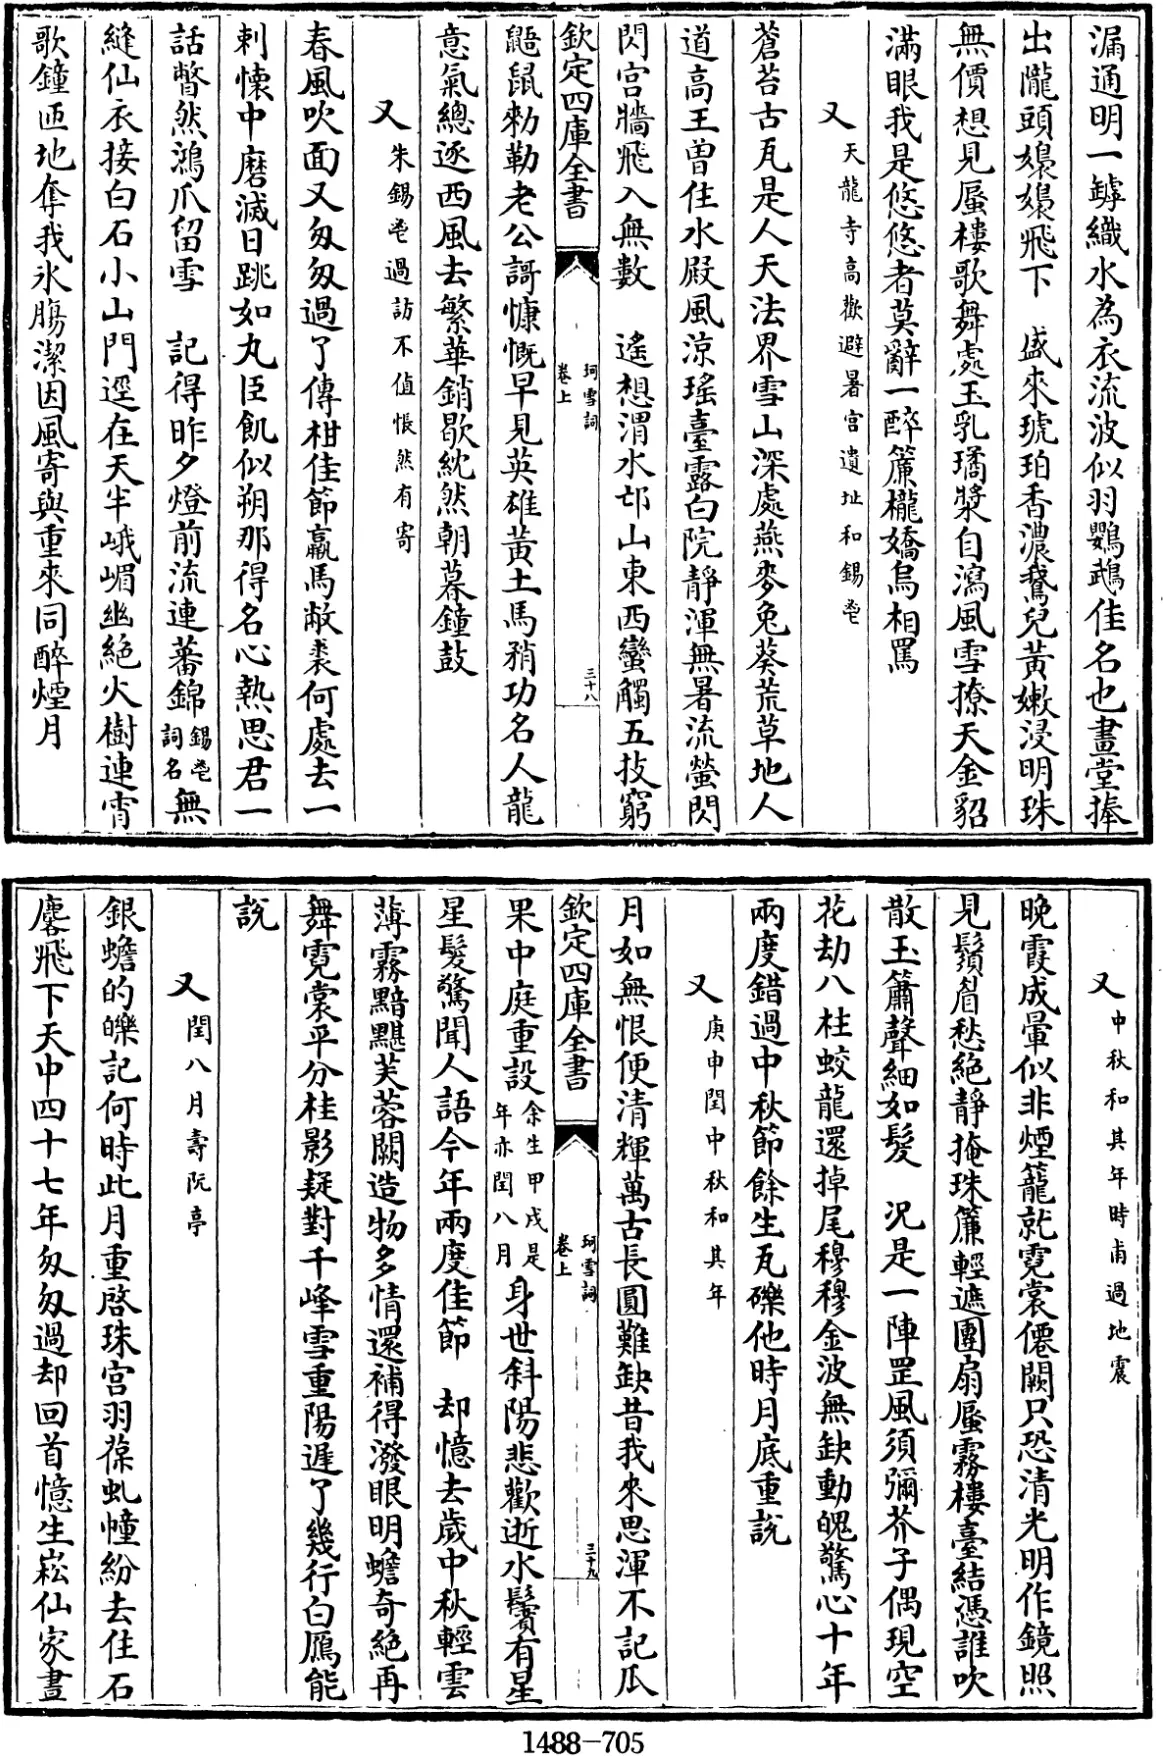 漏通明一罅織水為衣流波似羽鸚鵡佳名也畫堂捧
出隴頭嬝嬝飛下　盛來琥珀香濃鵞兒黃嫩浸明珠
無價想見蜃樓歌舞處玉乳璚漿自瀉風雪撩天金貂
滿眼我是悠悠者莫辭一醉簾櫳嬌鳥相罵
又天龍寺高歡避暑宮遺址和錫鬯
蒼苔古瓦是人天法界雪山深處燕麥兔葵荒草地人
道高王曾住水殿風涼瑤臺露白院靜渾無暑流螢閃
閃宮牆飛入無數　遙想渭水邙山東西蠻觸五技窮
欽定四庫全書
珂雪詞
卷上
三十八
鼯鼠勑勒老公謌慷慨早見英雄黃土馬矟功名人龍
意氣總逐西風去繁華銷歇紞然朝暮鐘鼓
又朱錫鬯過訪不值悵然有寄
春風吹面又匆匆過了傳柑佳節羸馬敝裘何處去一
刺懷中磨滅日跳如丸臣飢似朔那得名心熱思君一
話瞥然鴻爪留雪　記得昨夕燈前流連蕃錦錫鬯詞名無
縫仙衣接白石小山門逕在天半峨嵋幽絕火樹連宵
歌鐘匝地奪我氷腸潔因風寄與重來同醉煙月
又中秋和其年時甫過地震
晚霞成暈似非煙籠就霓裳僊闕只恐清光明作鏡照
見鬚眉愁絕靜掩珠簾輕遮團扇蜃霧樓臺結憑誰吹
散玉簫聲細如髮　況是一陣罡風須彌芥子偶現空
花劫八柱蛟龍還掉尾穆穆金波無缺動魄驚心十年
兩度錯過中秋節餘生瓦礫他時月底重說
又庚申閏中秋和其年
月如無恨便清輝萬古長圓難缺昔我來思渾不記瓜
欽定四庫全書
珂雪詞
卷上
三十九
果中庭重設余生甲戌是年亦閏八月身世斜陽悲歡逝水鬢有星
星髮驚聞人語今年兩度佳節　却憶去歲中秋輕雲
薄霧黯黮芙蓉闕造物多情還補得潑眼明蟾奇絕再
舞霓裳平分桂影疑對千峰雪重陽遲了幾行白鴈能
說
又閏八月壽阮亭
銀蟾的皪記何時此月重啓珠宮羽葆虬幢紛去住石
麐飛下天中四十七年匆匆過却回首憶生崧仙家晝
1488—705